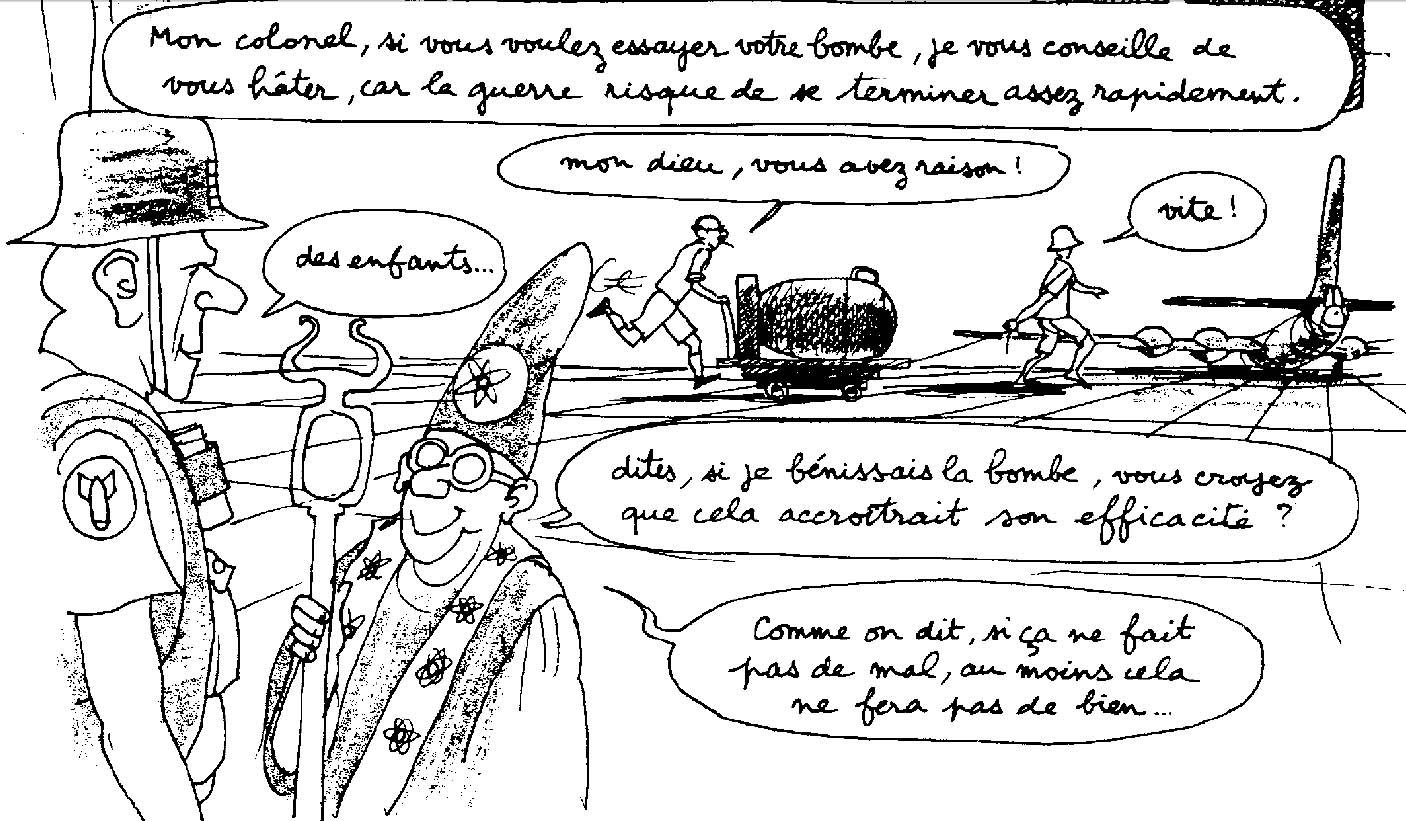 Mon colonel, si vous voulez essayer votre bombe, je vous conseille de
vous hâter, car la guerre risque de se terminer assez rapidement.
mon dieu, vous avez raison !
vite !
des enfants...
dites, si je bénissais la bombe, vous croyez
que cela accroîtrait son efficacité ?
Comme on dit, si ça ne fait
pas de mal, au moins cela
ne fera pas de bien...